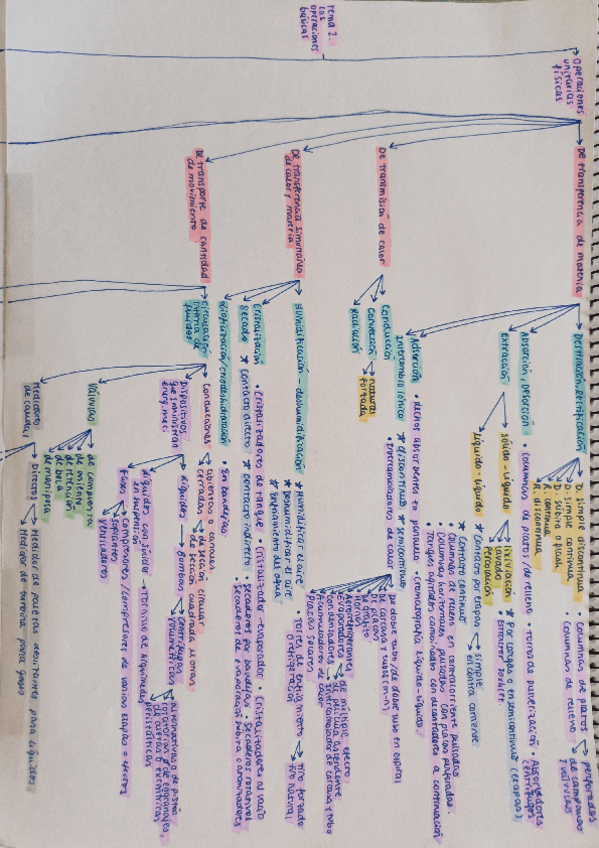 Tema 2.
Las
operaciones
básicas
Operaciones
unitarias
físicas
De transferencia de materia
Destilación, Rectificación
D. simple discontinua
D. simple continua
D. súbita o flash
R. continua
R. discontinua
• columnas de platos
perforados
de campanas
y válvulas
• columnas de relleno
Absorción, Desorción
• columnas de platos / de relleno • torres de pulverización • Absorbedores
centrífugos
Extracción
sólido-líquido
lixiviación
lavado
Percolación
★ Por cargas o en semicontinuo (etapas):
extractor Soxhlet.
líquido-líquido
★ contacto por etapas
simple
en contra corriente
★ Contacto continuo
• columnas de relleno en contracorriente pulsadas
• columnas horizontales pulsadas con placas perforadas.
• Tanques agitados combinados con decantadores a continuación
Adsorción
• lechos absorbentes en pantalla • cromatografía líquido-líquido.
Intercambio iónico ★ discontinuo ★ semicontinuo
De transmisión de calor
Conducción
Convección
natural
forzada
Radiación
• Intercambiadores de calor
De doble tubo / de doble tubo en espiral
De carcasa y tubos (m-n)
De placas
De grafito
Hornos
Aerorefrigerantes
Evaporadores
de múltiple efecto
de película ascendente
Condensadores
Intercambiador de carcasa y tubo
Acumuladores de calor
Placas solares
De transferencia simultánea
de calor y materia
Humidificación - deshumidificación
★ Humidificar el aire
★ Deshumidificar el aire
★ Enfriamiento del agua
• Torres de enfriamiento
o refrigeración
tiro forzado
tiro natural
Cristalización
• cristalizadores de tanque • cristalizador-evaporador • cristalizadores al vacío
Secado ★ contacto directo ★ contacto indirecto
• secaderos por bandejas • secaderos rotativos
• secaderos de evaporación súbita o atomizadores
Liofilización/criodeshidratación • En bandejas
De transporte de cantidad
de movimiento
Circulación
interna de
fluidos
Conducciones
abiertas o canales
cerradas
de sección circular
de sección cuadrada u otras
Dispositivos
que suministran
energ. mec.
líquidos
Bombas
centrífugas
volumétricas
alternativas de pistón
rotatorias
de engranajes,
de paletas o excéntricas
peristálticas
líquidos con sólidos
en suspensión
Tornillo de Arquímedes
Fluidos
compresores / compresores de varias etapas o efectos
soplantes
Ventiladores
Válvulas
de compuerta
de asiento
de retención
de bola
de mariposa
Medidores
de caudal
Directos
Medidor de paletas oscilantes para líquidos
Medidor de turbina para gases